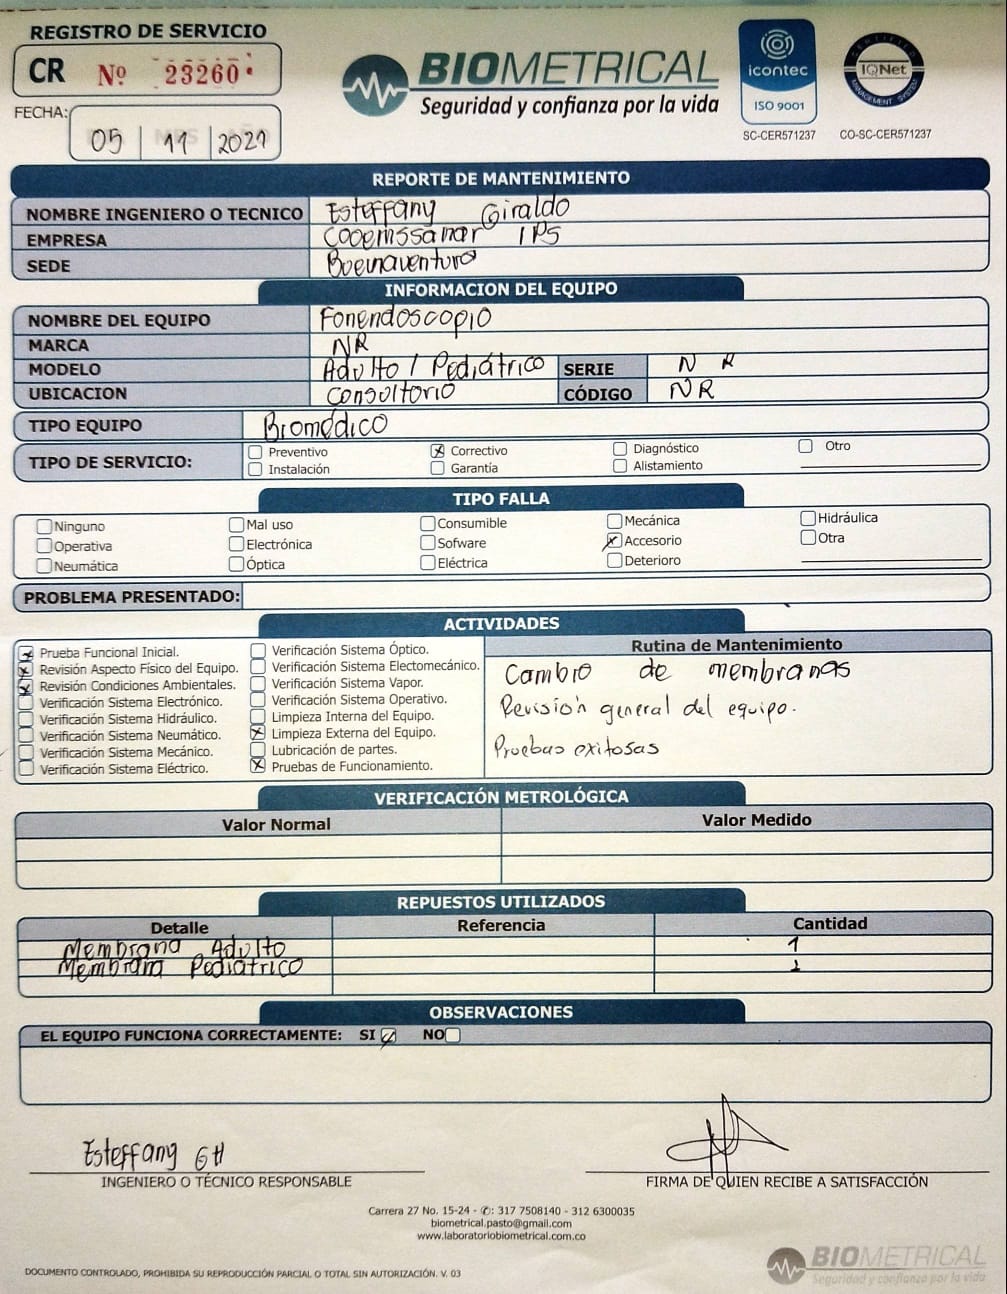 REGISTRO DE SERVICIO
CR Nº 23260
BIOMETRICAL
Seguridad y confianza por la vida
icontec
ISO 9001
SC-CER571237
CERTIFIED
IQNet
MANAGEMENT SYSTEM
CO-SC-CER571237
FECHA: 05 11 2021
REPORTE DE MANTENIMIENTO
NOMBRE INGENIERO O TECNICO Esteffany Giraldo
EMPRESA Cooemssanar IPS
SEDE Buenaventura
INFORMACION DEL EQUIPO
NOMBRE DEL EQUIPO Fonendoscopio
MARCA NR
MODELO Adulto / Pediátrico SERIE N R
UBICACION Consultorio CÓDIGO NR
TIPO EQUIPO Biomédico
TIPO DE SERVICIO:
Preventivo Correctivo Diagnóstico Otro
Instalación Garantía Alistamiento
TIPO FALLA
Ninguno Mal uso Consumible Mecánica Hidráulica
Operativa Electrónica Sofware Accesorio Otra
Neumática Óptica Eléctrica Deterioro
PROBLEMA PRESENTADO:
ACTIVIDADES
Prueba Funcional Inicial.
Revisión Aspecto Físico del Equipo.
Revisión Condiciones Ambientales.
Verificación Sistema Electrónico.
Verificación Sistema Hidráulico.
Verificación Sistema Neumático.
Verificación Sistema Mecánico.
Verificación Sistema Eléctrico.
Verificación Sistema Óptico.
Verificación Sistema Electomecánico.
Verificación Sistema Vapor.
Verificación Sistema Operativo.
Limpieza Interna del Equipo.
Limpieza Externa del Equipo.
Lubricación de partes.
Pruebas de Funcionamiento.
Rutina de Mantenimiento
Cambio de membranas
Revisión general del equipo.
Pruebas exitosas
VERIFICACIÓN METROLÓGICA
Valor Normal Valor Medido
REPUESTOS UTILIZADOS
Detalle Referencia Cantidad
Membrana Adulto 1
Membrana Pediátrico 1
OBSERVACIONES
EL EQUIPO FUNCIONA CORRECTAMENTE: SI NO
Esteffany GH
INGENIERO O TÉCNICO RESPONSABLE
FIRMA DE QUIEN RECIBE A SATISFACCIÓN
Carrera 27 No. 15-24 - ✆: 317 7508140 - 312 6300035
biometrical.pasto@gmail.com
www.laboratoriobiometrical.com.co
DOCUMENTO CONTROLADO, PROHIBIDA SU REPRODUCCIÓN PARCIAL O TOTAL SIN AUTORIZACIÓN. V. 03
BIOMETRICAL
Seguridad y confianza por la vida